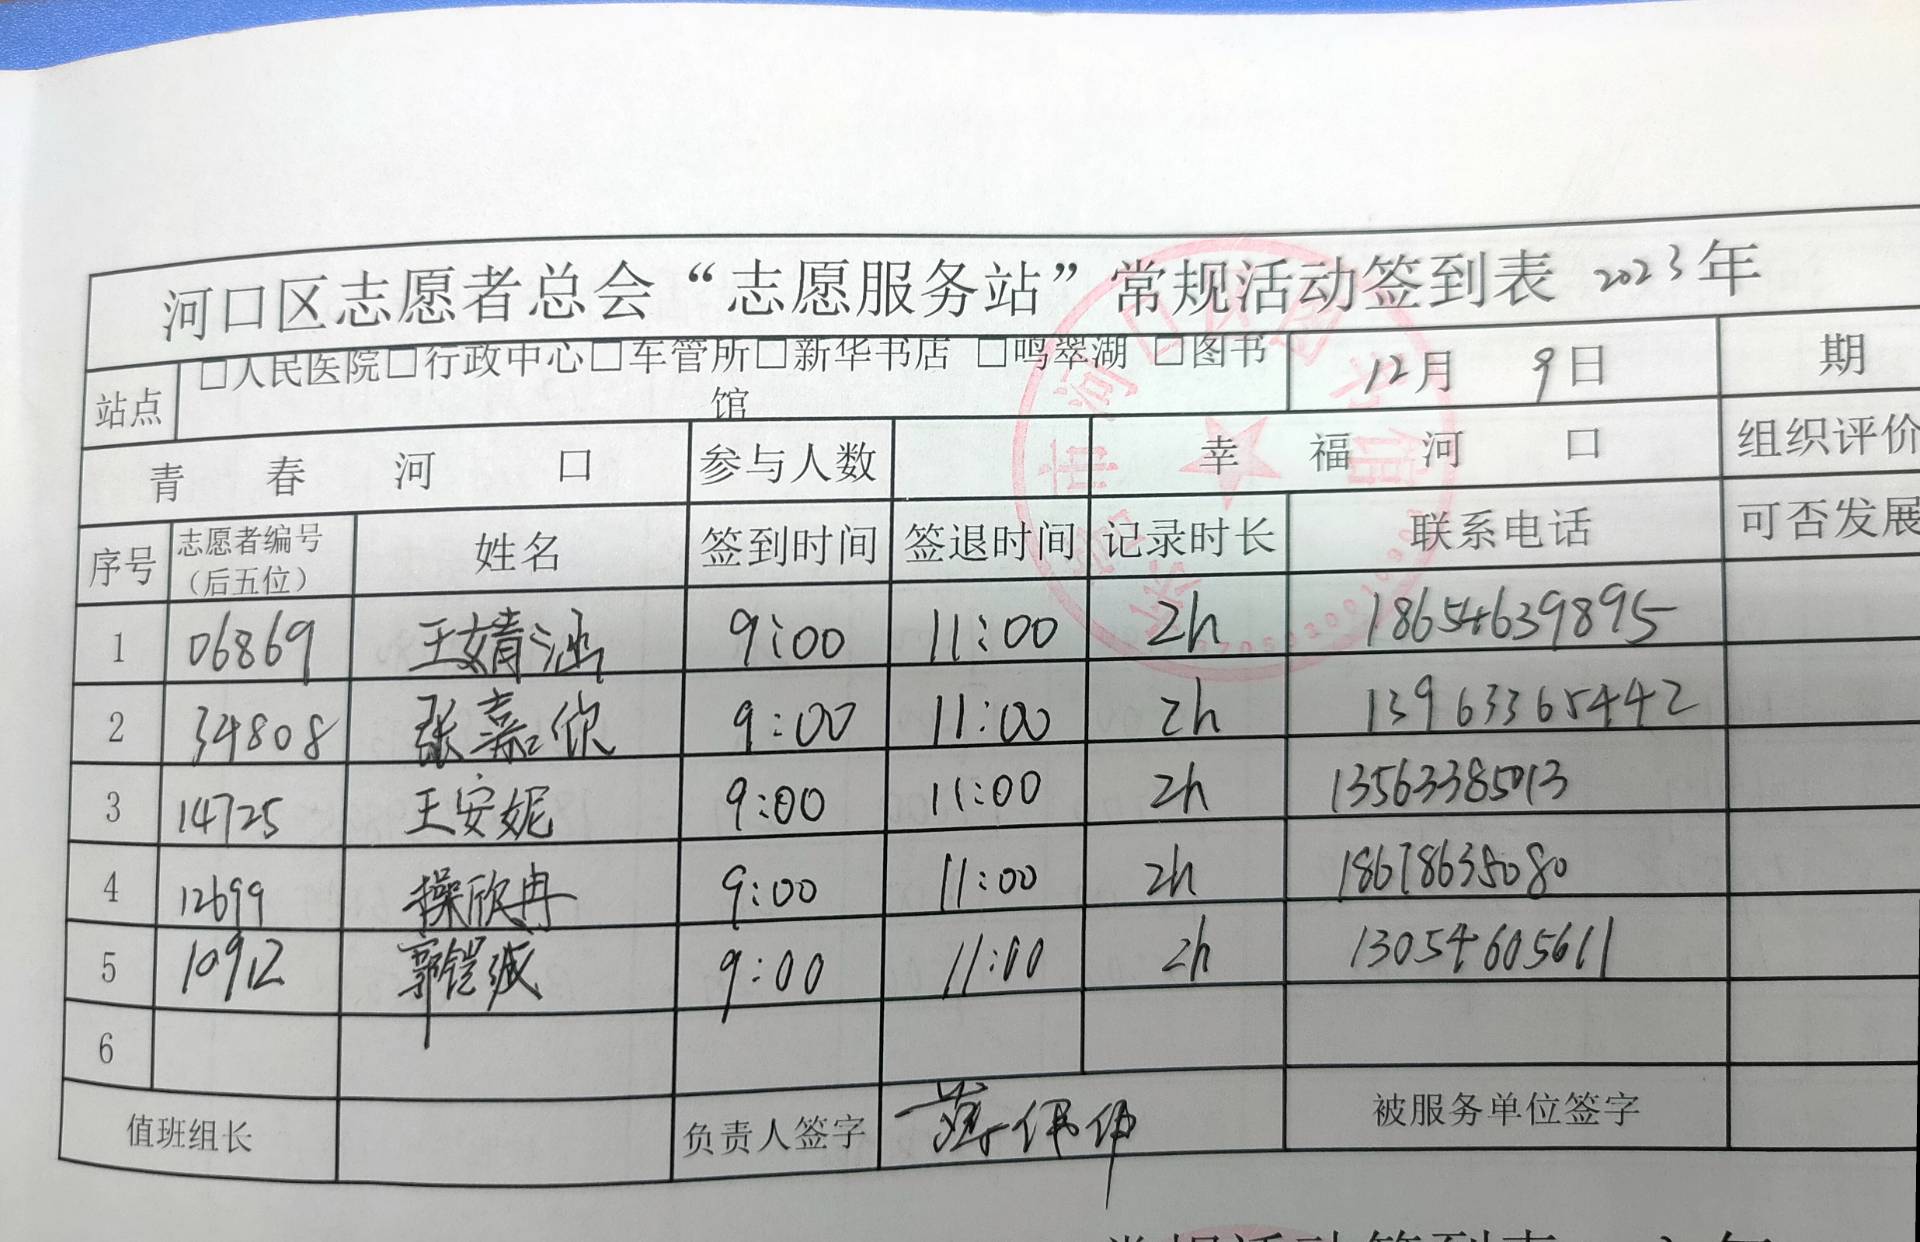 河口区志愿者总会“志愿服务站”常规活动签到表 2023年
站点 □人民医院□行政中心□车管所□新华书店 □鸣翠湖 □图书馆 12月 9日 期
青春河口 参与人数 幸福河口 组织评价
序号 志愿者编号（后五位） 姓名 签到时间 签退时间 记录时长 联系电话 可否发展
1 06869 王婧涵 9:00 11:00 2h 18654639895
2 34808 张嘉欣 9:00 11:00 2h 13963365442
3 14725 王安妮 9:00 11:00 2h 13563385013
4 12699 操欣冉 9:00 11:00 2h 18678635080
5 10912 郭铠诚 9:00 11:00 2h 13054605611
6
值班组长 负责人签字 薄伟伟 被服务单位签字
常规活动签到表 年